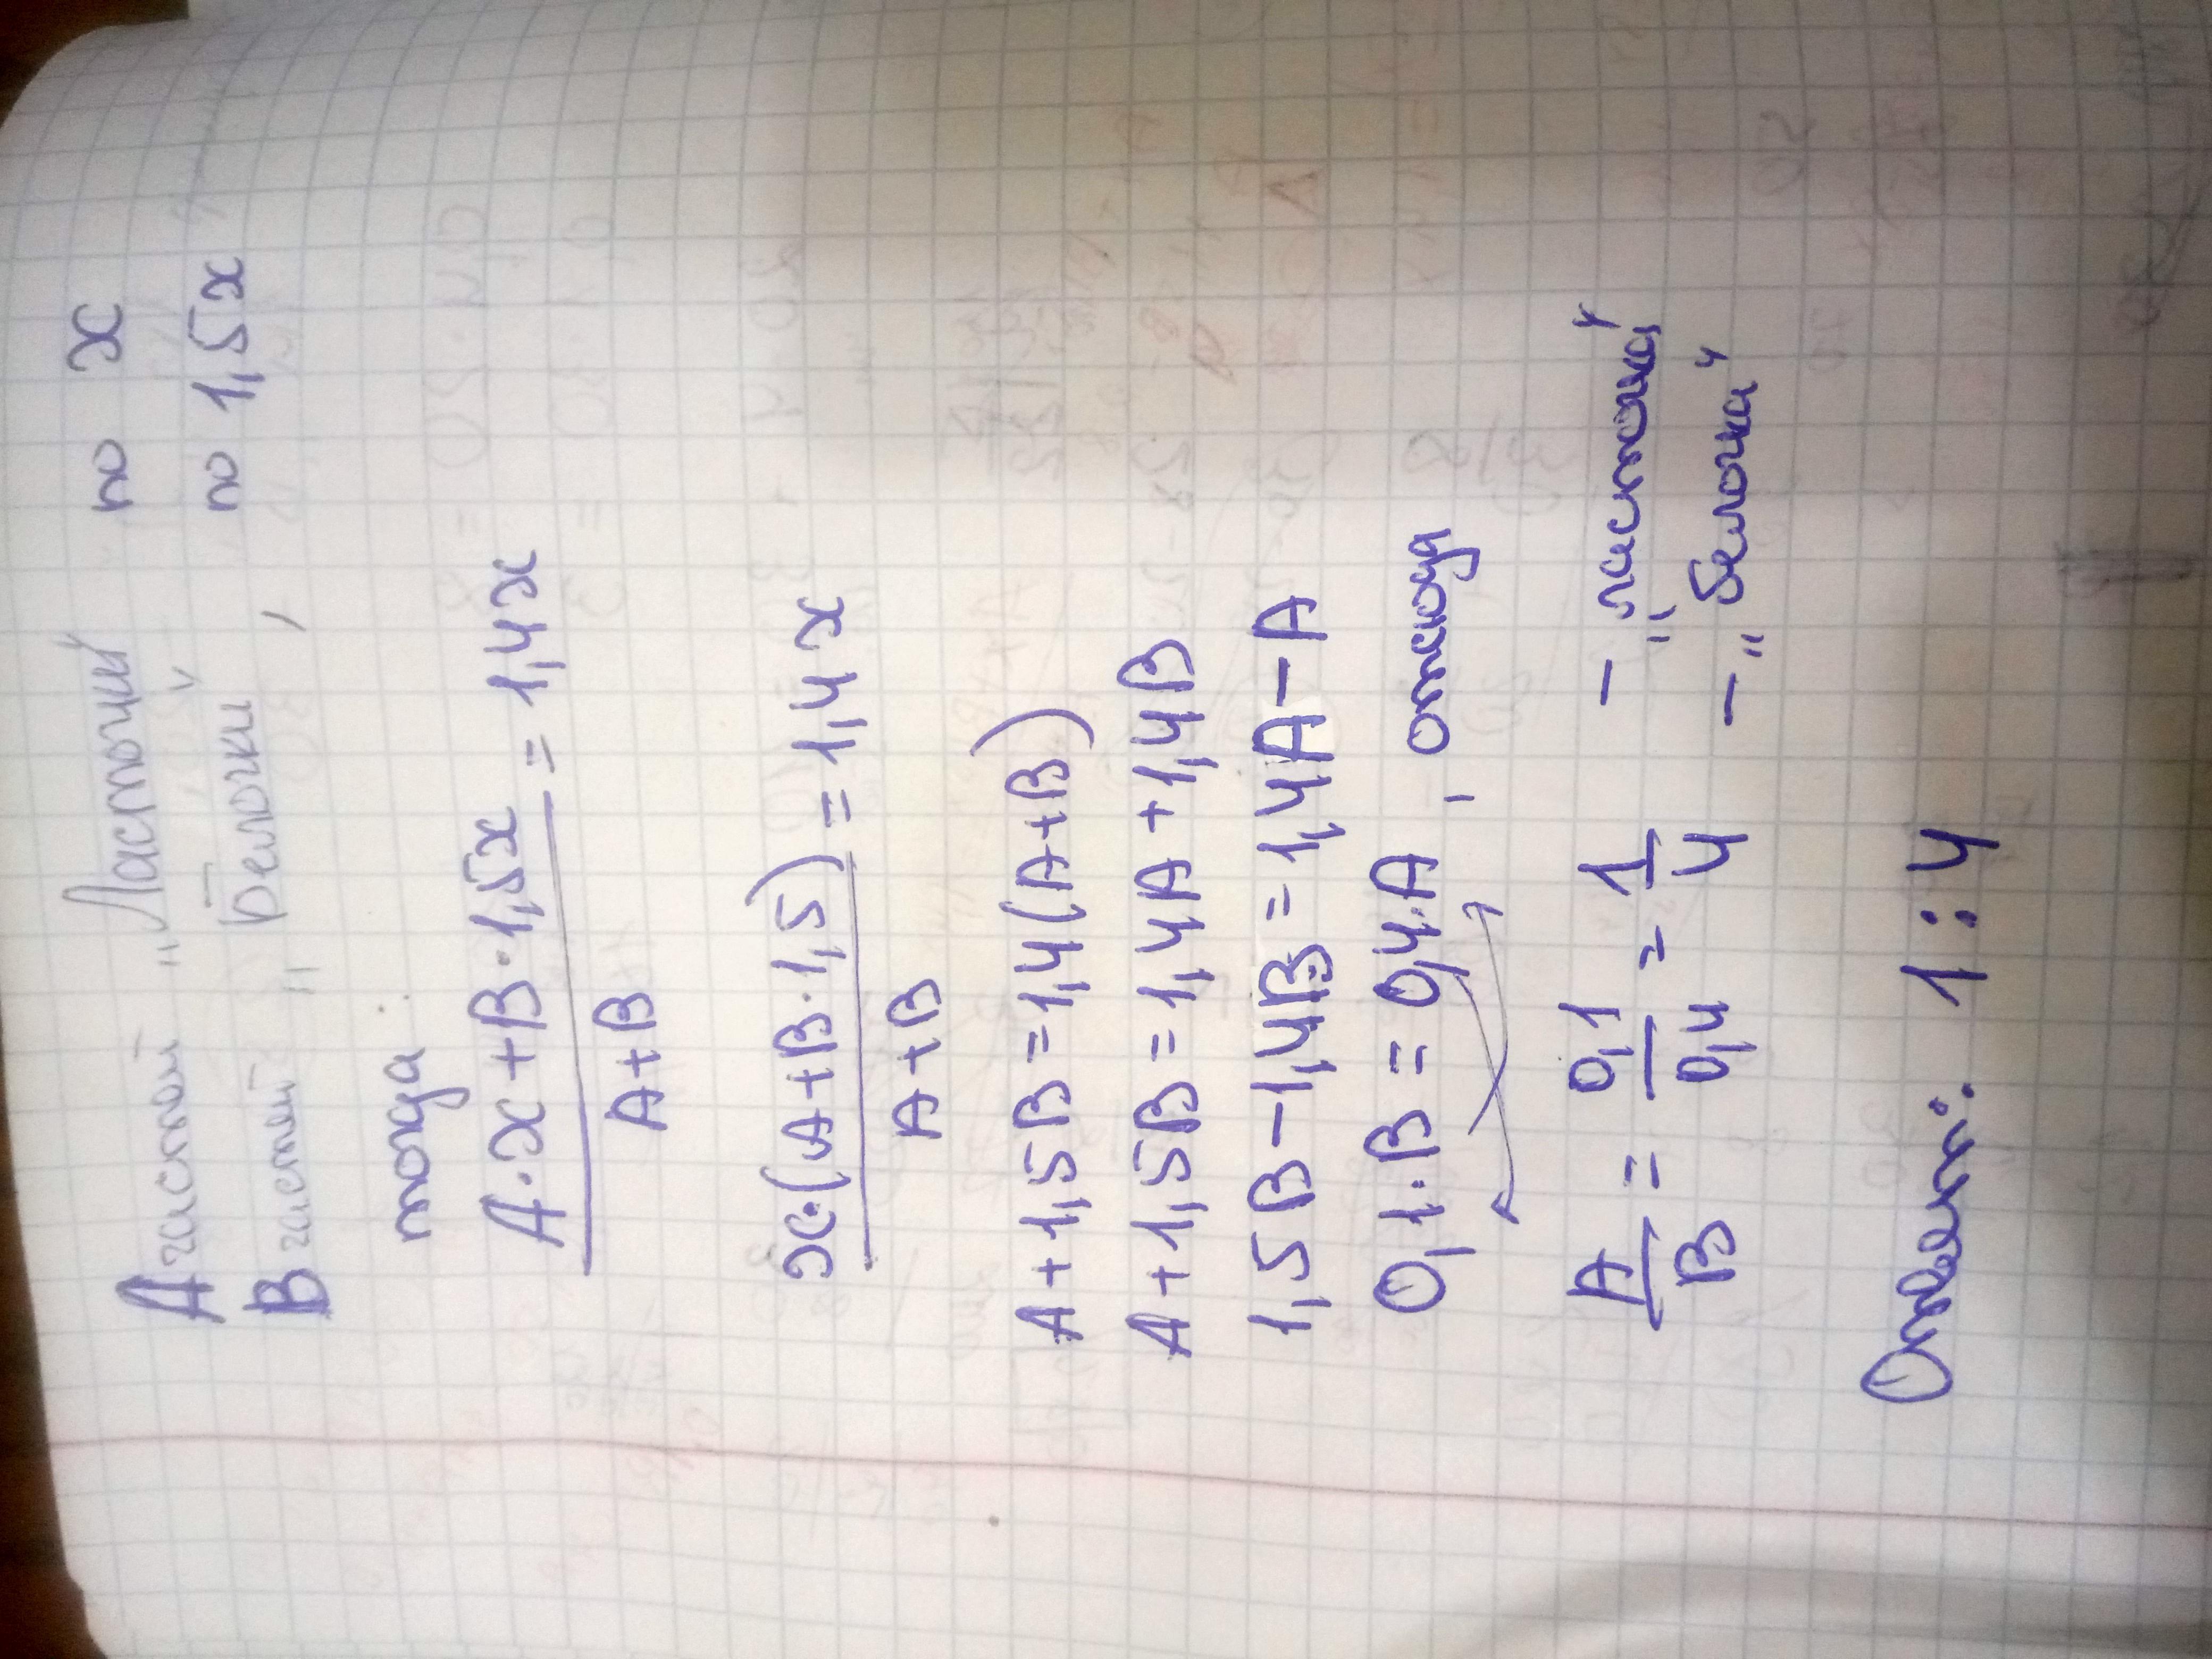 A частей „Ласточки" по x
B частей „Белочки", по 1,5x
тогда
A·x+B·1,5x
A+B
=1,4x
x·(A+B·1,5)
A+B
=1,4x
A+1,5B=1,4(A+B)
A+1,5B=1,4A+1,4B
1,5B-1,4B=1,4A-A
0,1·B=0,4·A, отсюда
A/B = 0,1/0,4 = 1/4
- „ласточка"
- „белочка"
Ответ: 1:4